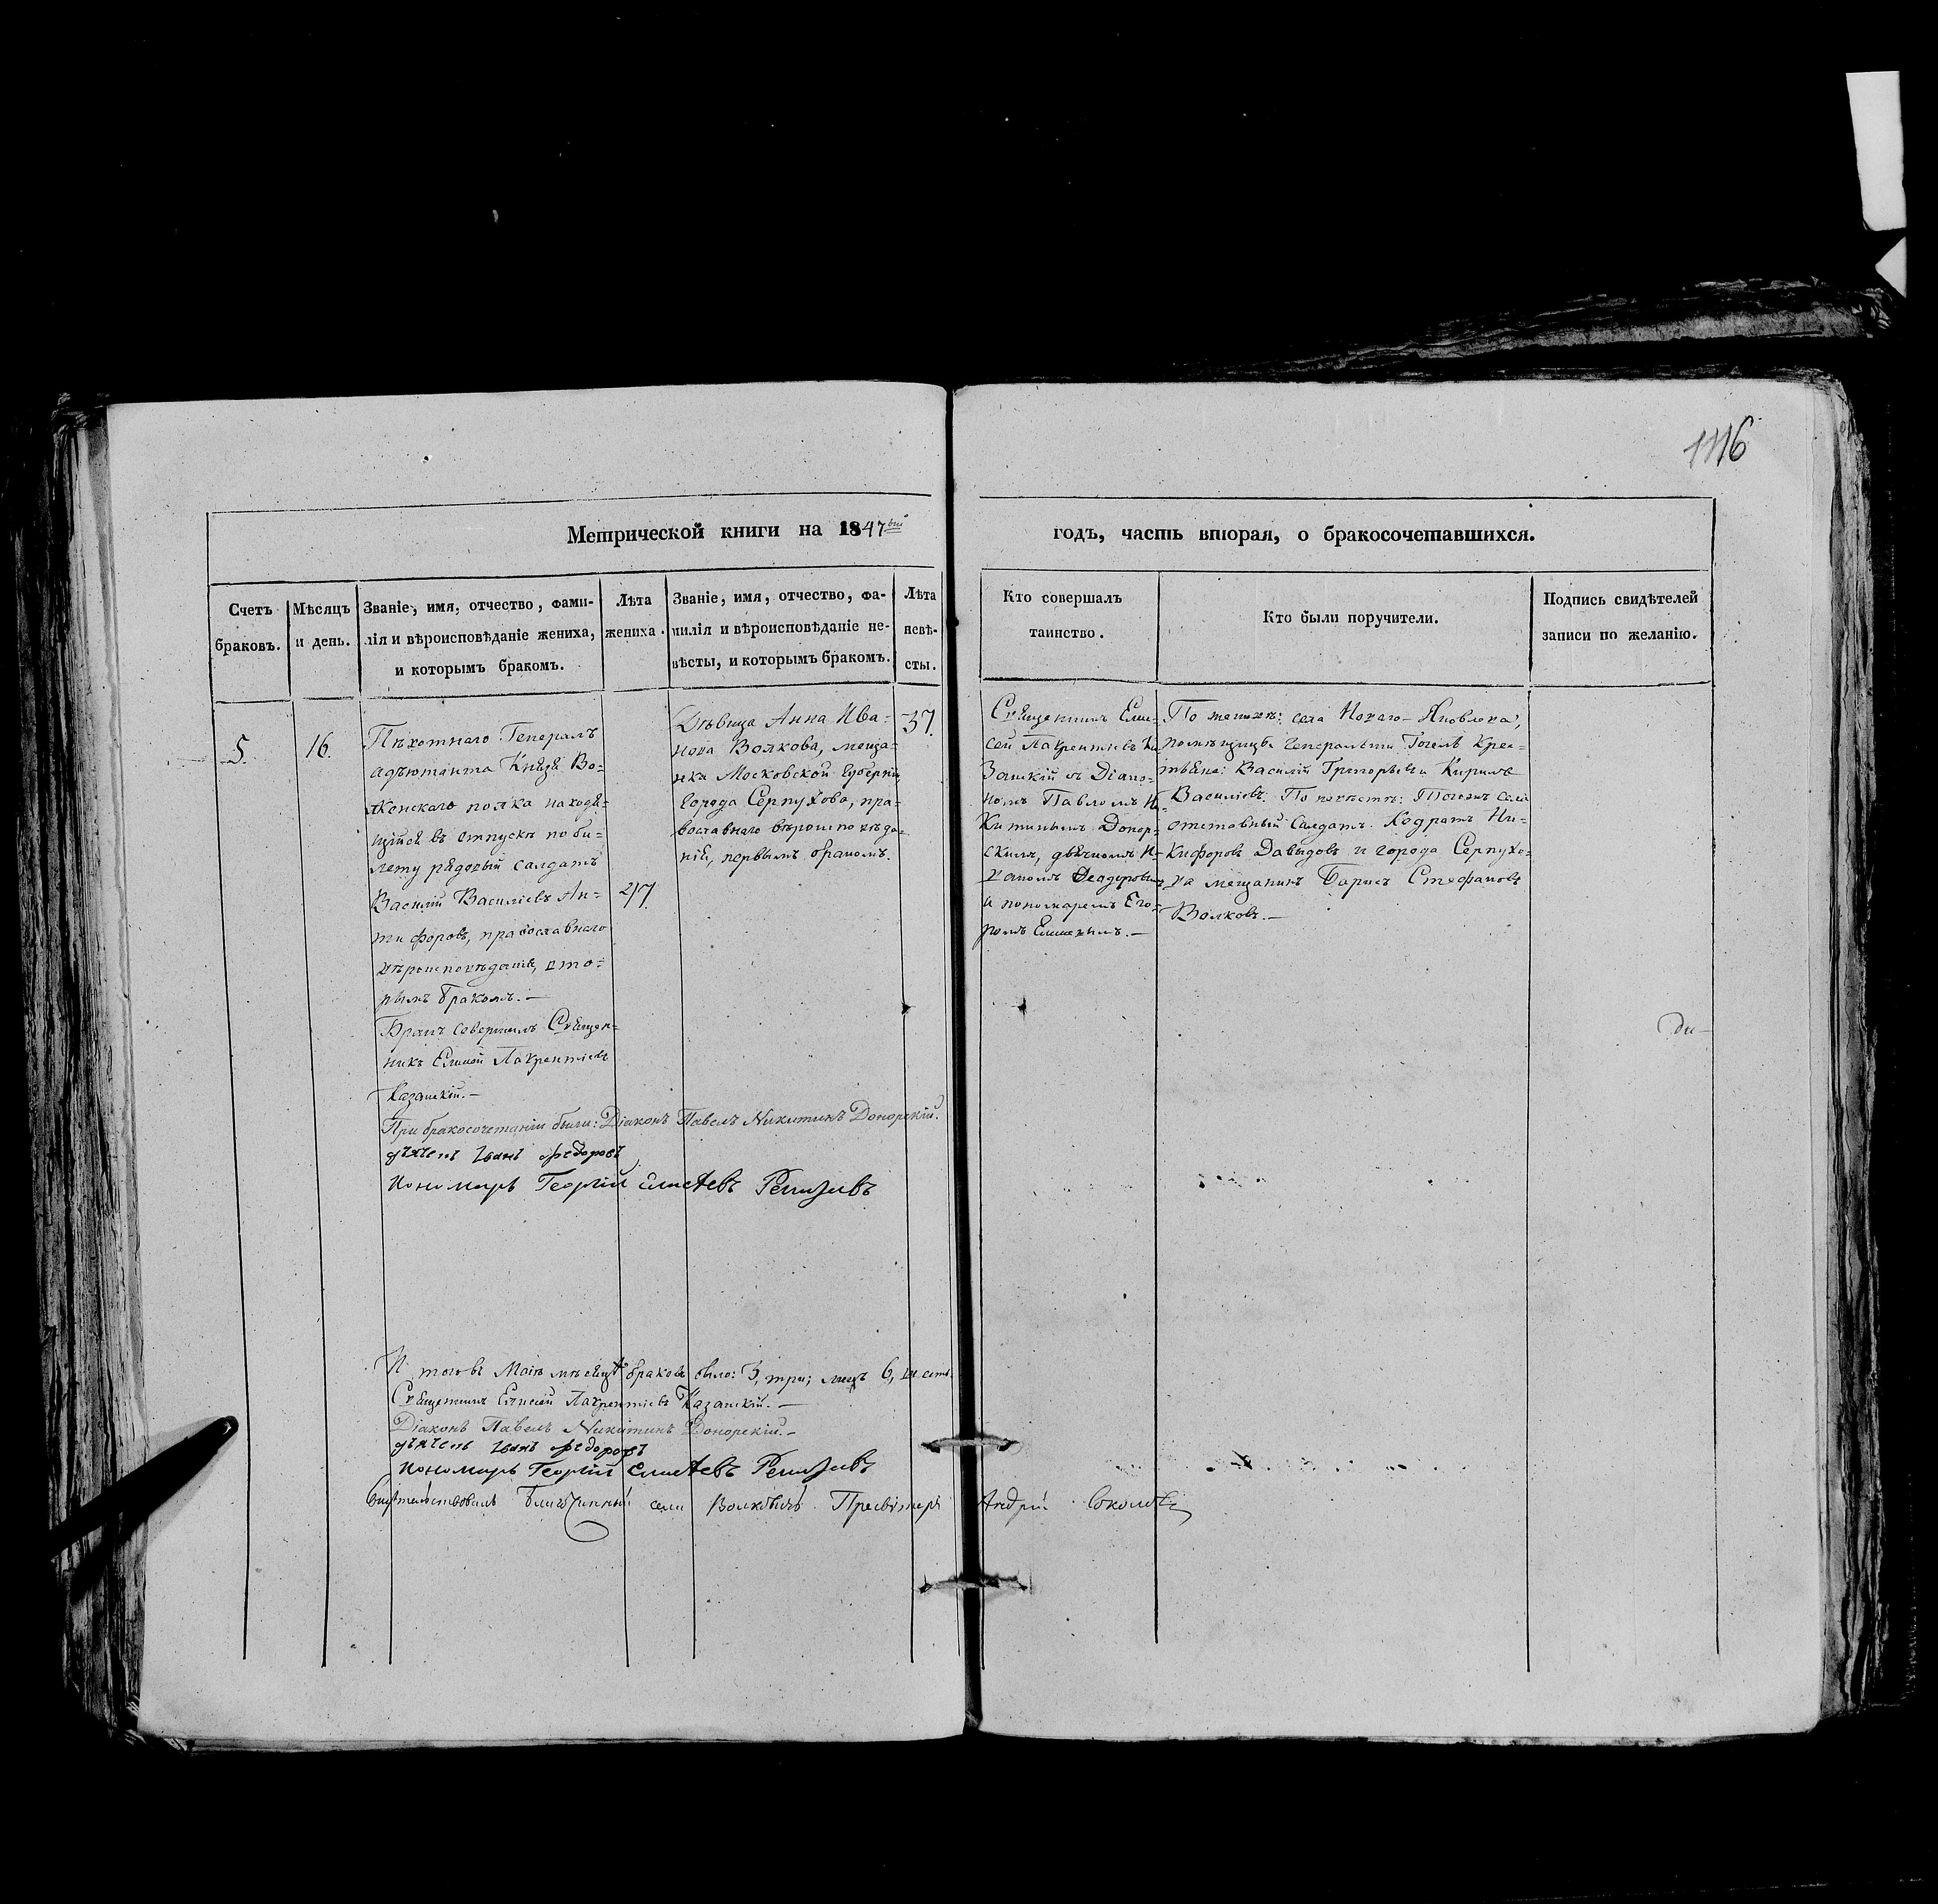 1116
Метрической книги на 1847ый годъ, часть вторая, о бракосочетавшихся.
Счетъ браковъ.
Мѣсяцъ и день.
Званіе, имя, отчество, фами-
лія и вѣроисповѣданіе жениха,
и которымъ бракомъ.
Лѣта
жениха.
Званіе, имя, отчество, фа-
милія и вѣроисповѣданіе не-
вѣсты, и которымъ бракомъ.
Лѣта
невѣ-
сты.
Кто совершалъ
таинство.
Кто были поручители.
Подпись свидѣтелей
записи по желанію.
5.
16.
Пѣхотнаго Генералъ
адъютанта Князя Во=
лконскаго полка находя=
щійся въ отпускѣ по би=
лету рядовый салдатъ
Василій Василіевъ Ан=
тифоровъ, православнаго
вѣроисповѣданія, вто=
рымъ бракомъ.—
27.
Дѣвица Анна Ива=
нова Волкова, мѣща=
нка Московской Губерніи,
города Серпухова, пра=
вославнаго вѣроисповѣда=
нія, первымъ бракомъ.
37.
Священникъ Ели=
сей Лаврентіевъ Ка
занскій съ Діако=
номъ Павломъ Ни=
китинымъ Донор=
скимъ, дьячкомъ И=
ваномъ Феодоровымъ
и пономаремъ Его=
ромъ
По женихѣ: села Новаго-Яковлева,
помѣщицы Генеральши Гогель Крес=
тьяне: Василій Григорьевъ и Кирилъ
Василіевъ. По невѣстѣ: Тогожъ села
отставный Салдатъ Кодратъ Ни=
кифоровъ Давыдовъ и города Серпухо=
ва мещанинъ Борисъ Стефановъ
Волковъ.—
Бракъ совершилъ Священ=
никъ Елисей Лаврентіевъ
Казанскій.—
При бракосочетаніи были: Діаконъ Павелъ Никитинъ Донорскій.
дьячекъ Іванъ Федоровъ
Пономарь Георгій Елисѣевъ
Итого въ Маіѣ мѣсяцѣ браковъ было: 3, три; лицъ 6, шесть.
Священникъ Елисей Лаврентіевъ Казанскій.—
Діаконъ Павелъ Никитинъ Донорскій.—
дьячекъ Іванъ Федоровъ
Пономарь Георгій Елисѣевъ
Свидѣтельствовалъ Благочинный села Пресвитеръ Андрей Соколовъ